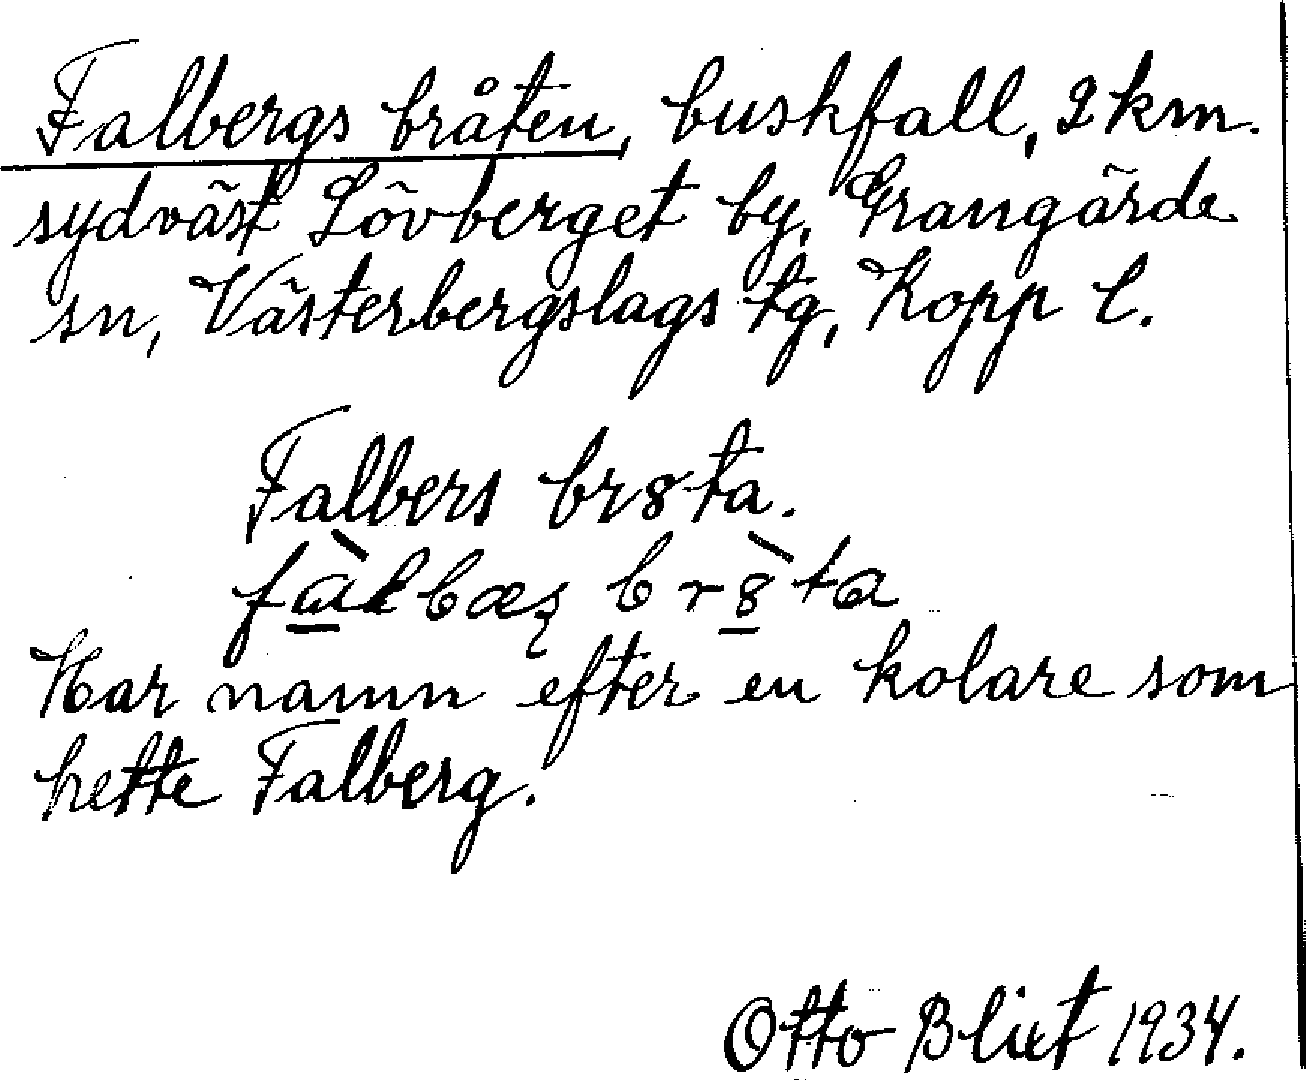 Falbergs bråten, bushfall, 2 km.
sydväst Lövberget by, Grangärde
sn, Västerbergslags tg, Kopp l.
Falbers br8ta.
fàlbæʂ br8̀ta
Har namn efter en kolare som
hette Falberg.
Otto Blixt 1934.